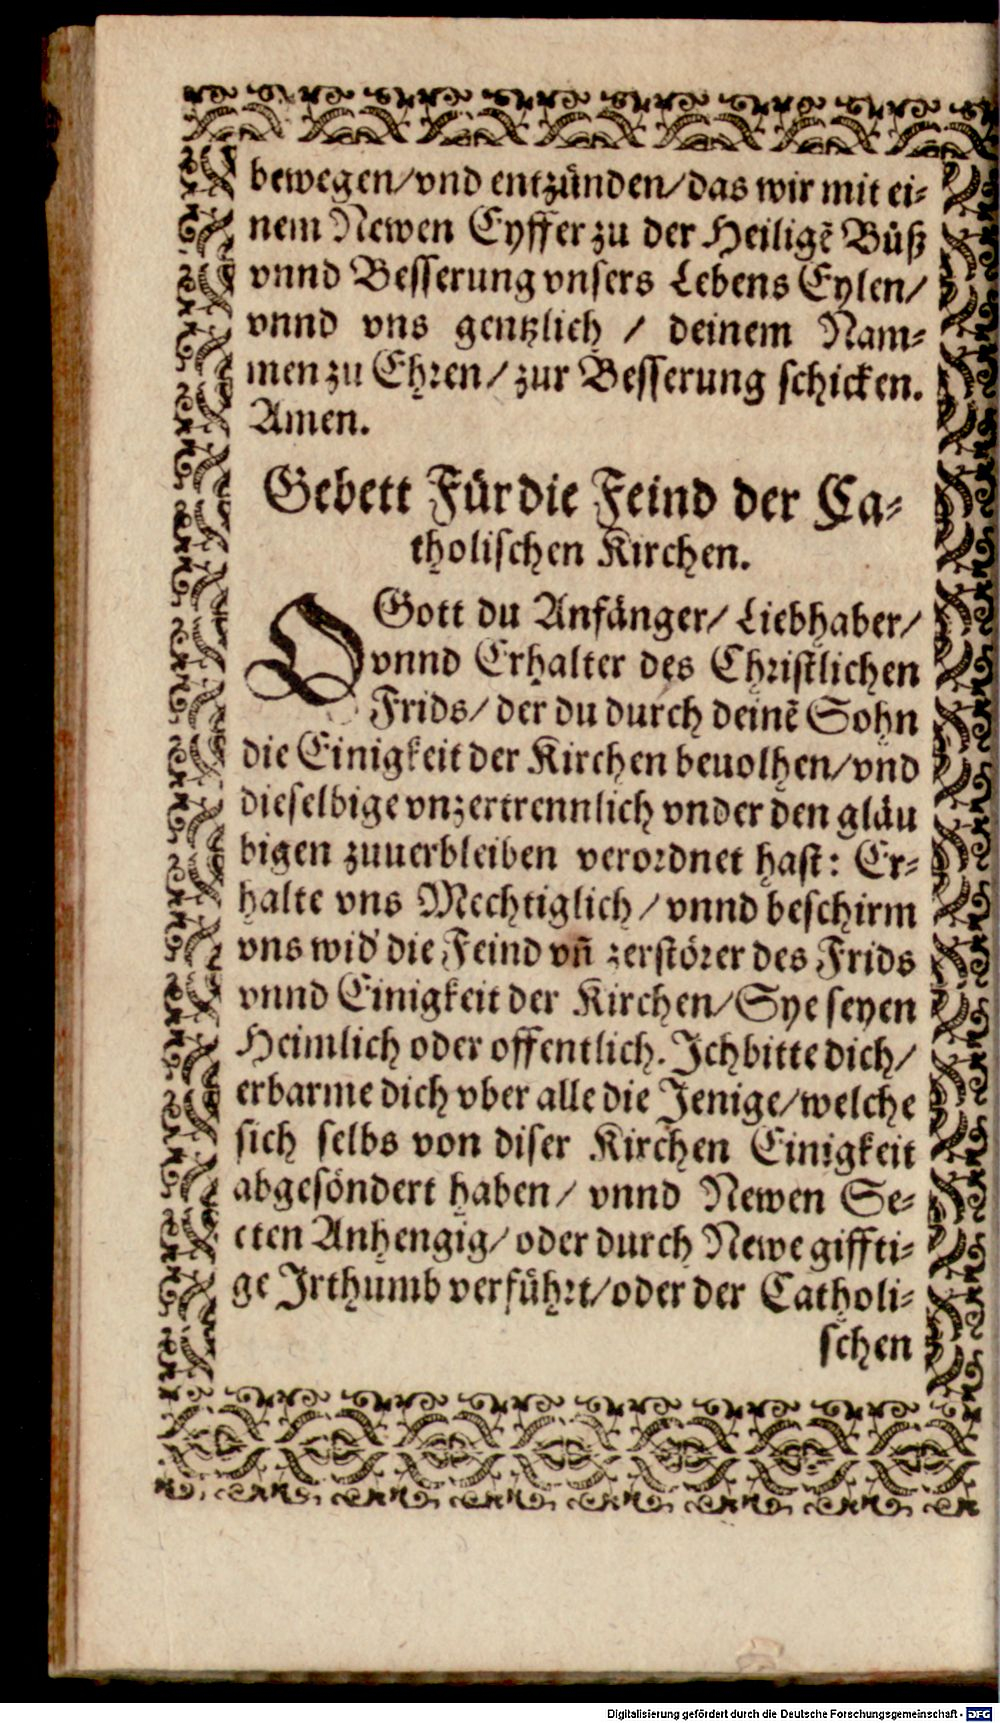 bewegen/vnd entzünden/das wir mit ei-
nem Newen Eyffer zu der Heiligẽ Bůß
vnnd Besserung vnsers Lebens Eylen/
vnnd vns gentzlich / deinem Nam-
men zu Ehren/ zur Besserung schicken.
Amen.
Gebett Für die Feind der Ca-
tholischen Kirchen.
O Gott du Anfänger/ Liebhaber/
vnnd Erhalter des Christlichen
Frids/ der du durch deinẽ Sohn
die Einigkeit der Kirchen beuolhen/vnd
dieselbige vnzertrennlich vnder den gläu
bigen zuuerbleiben verordnet hast: Er-
halte vns Mechtiglich/ vnnd beschirm
vns wid' die Feind vñ zerstörer des Frids
vnnd Einigkeit der Kirchen/Sye seyen
Heimlich oder offentlich. Ich bitte dich/
erbarme dich vber alle die Jenige/welche
sich selbs von diser Kirchen Einigkeit
abgesöndert haben/ vnnd Newen Se-
cten Anhengig/ oder durch Newe giffti-
ge Irthumb verführt/oder der Catholi-
schen
Digitalisierung gefördert durch die Deutsche Forschungsgemeinschaft - DFG